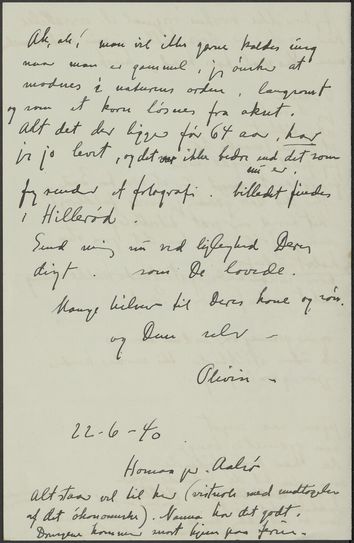 Ak, ak! man vil ikke gerne kaldes ung
naar man er gammel, jeg ønsker at
modnes i naturens orden, langsomt
og som et korn løsnes fra akset.
Alt det der ligger før 64 aar, har
jeg jo levet, og det var ikke bedre end det som
nu er.
Jeg sender et fotografi. billedet findes
i Hillerød.
Send mig nu ved lejlighed Deres
digt. som De lovede.
Mange hilsner til Deres kone og søn.
og Dem selv –
22-6-40
Alt staar vel til her (virtuelt med undtagelse
af det økonomiske). Nanna har det godt.
Drengene kommer snart hjem paa ferie.